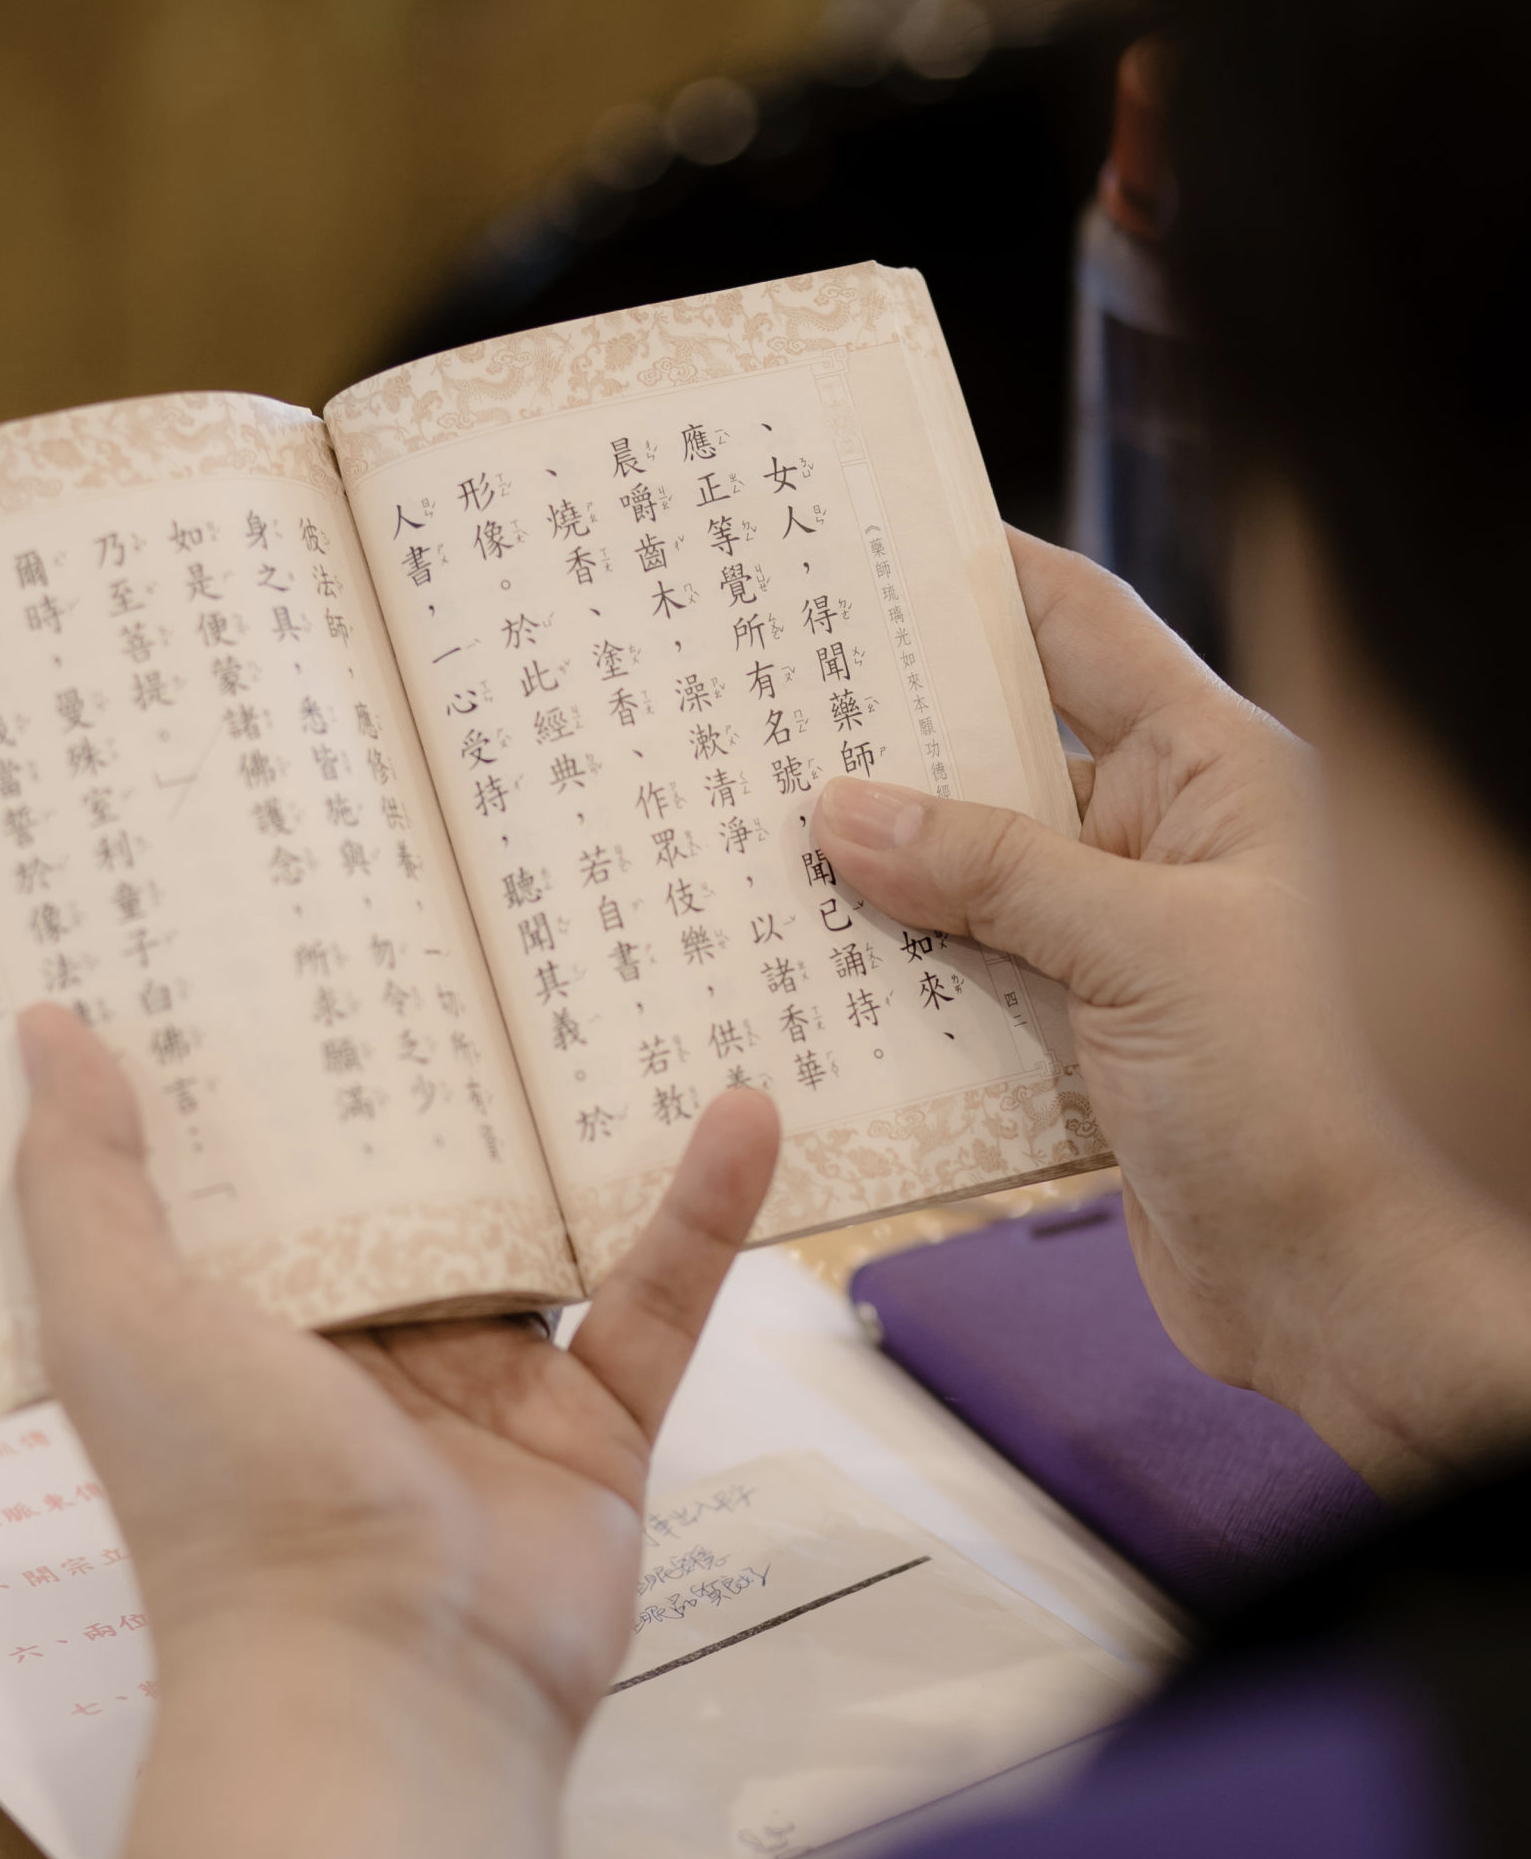 《藥師琉璃光如來本願功德經
四二
、女人，得聞藥師如來、
應正等覺所有名號，聞已誦持。
晨嚼齒木，澡漱清淨，以諸香華
、燒香、塗香、作眾伎樂，供養
形像。於此經典，若自書，若教
人書，一心受持，聽聞其義。於
彼法師，應修供養，一切所有
身之具，悉皆施與，勿令乏少。
如是便蒙諸佛護念，所求願滿，
乃至菩提。」
爾時，曼殊室利童子白佛言：「
當誓於像法
脈東傳
、開宗立
六、兩位
七、